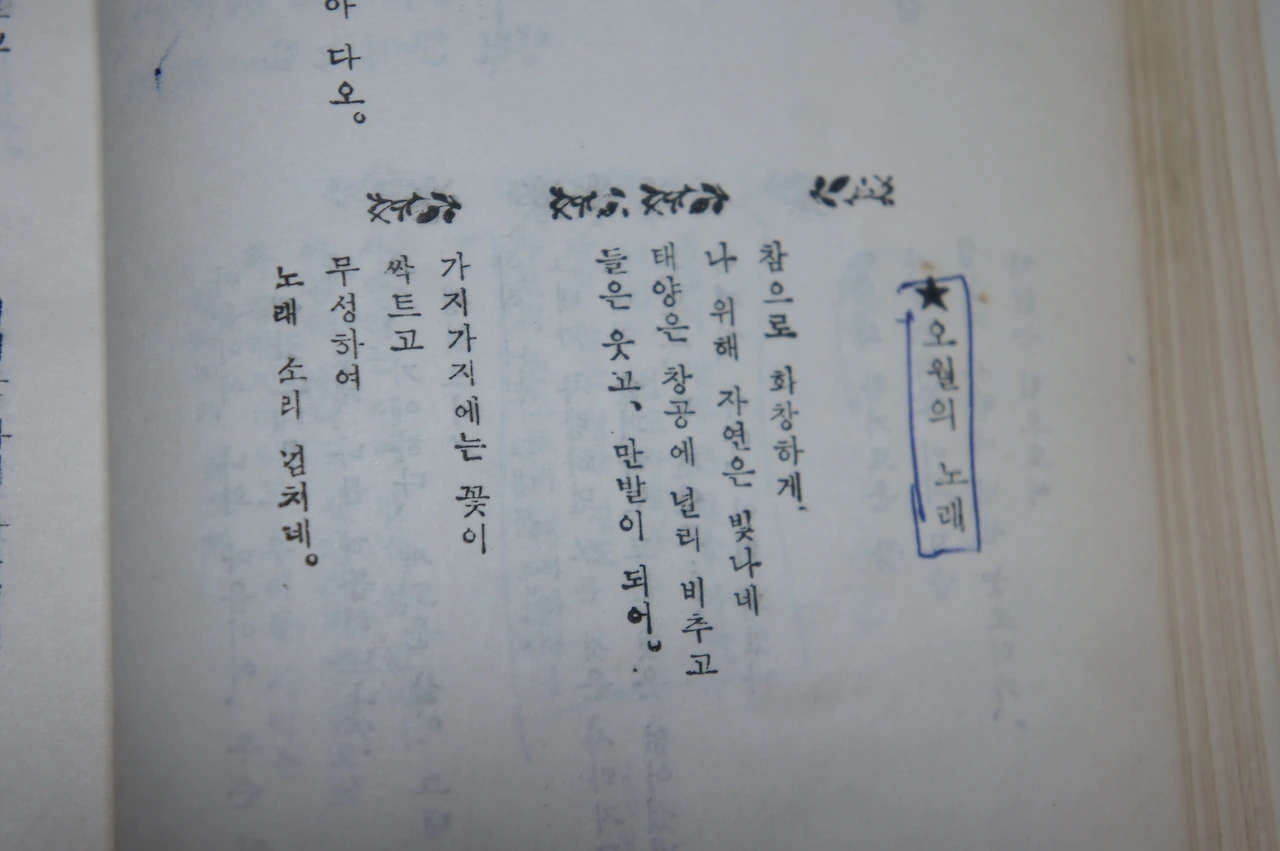 ★오월의 노래
참으로 화창하게.
나 위해 자연은 빛나네
태양은 창공에 널리 비추고
들은 웃고、 만발이 되어。
가지가지에는 꽃이
싹트고
무성하여
노래 소리 넘치네。
다오。